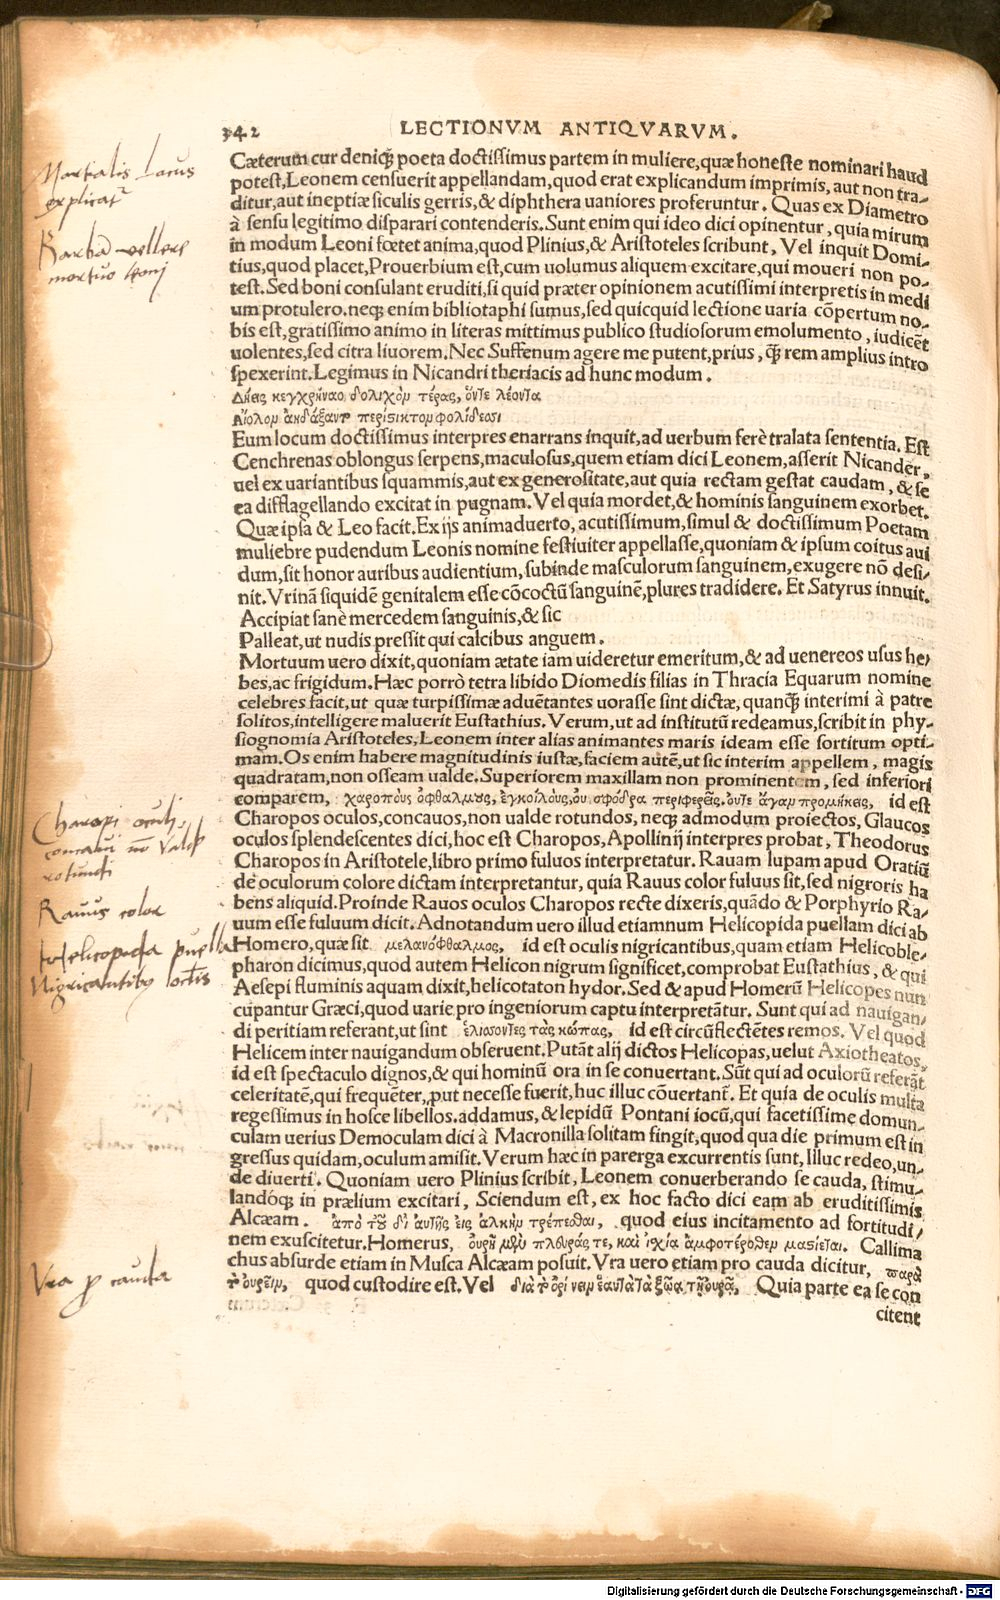 342 LECTIONVM ANTIQVARVM.
Cæterum cur deniqꝫ poeta doctissimus partem in muliere, quæ honeste nominari haud
potest, Leonem censuerit appellandam, quod erat explicandum imprimis, aut non tra-
ditur, aut ineptiæ siculis gerris, & diphthera uaniores proferuntur. Quas ex Diametro
à sensu legitimo disparari contenderis. Sunt enim qui ideo dici opinentur, quia mirum
in modum Leoni fœtet anima, quod Plinius, & Aristoteles scribunt, Vel inquit Domi-
tius, quod placet, Prouerbium est, cum uolumus aliquem excitare, qui moueri non po-
test. Sed boni consulant eruditi, si quid præter opinionem acutissimi interpretis in medi
um protulero. neqꝫ enim bibliotaphi sumus, sed quicquid lectione uaria cõpertum no-
bis est, gratissimo animo in literas mittimus publico studiosorum emolumento, iudicẽt
uolentes, sed citra liuorem. Nec Suffenum agere me putent, prius, ꝙ̃ rem amplius intro
spexerint. Legimus in Nicandri theriacis ad hunc modum.
Δήεις κεγχρήναο δολιχὸν τέρας, ὅντε λέοντα
Αἴολον
Eum locum doctissimus interpres enarrans inquit, ad uerbum ferè tralata sententia. Est
Cenchrenas oblongus serpens, maculosus, quem etiam dici Leonem, asserit Nicander,
uel ex uariantibus squammis, aut ex generositate, aut quia rectam gestat caudam, & se
ea difflagellando excitat in pugnam. Vel quia mordet, & hominis sanguinem exorbet.
Quæ ipsa & Leo facit. Ex ijs animaduerto, acutissimum, simul & doctissimum Poetam
muliebre pudendum Leonis nomine festiuiter appellasse, quoniam & ipsum coitus aui
dum, sit honor auribus audientium, subinde masculorum sanguinem, exugere nõ desi-
nit. Vrinã siquidẽ genitalem esse cõcoctũ sanguinẽ, plures tradidere. Et Satyrus innuit.
Accipiat sanè mercedem sanguinis, & sic
Palleat, ut nudis pressit qui calcibus anguem.
Mortuum uero dixit, quoniam ætate iam uideretur emeritum, & ad uenereos usus he-
bes, ac frigidum. Hæc porrò tetra libido Diomedis filias in Thracia Equarum nomine
celebres facit, ut quæ turpissimæ aduẽtantes uorasse sint dictæ, quanꝙ̃ interimi à patre
solitos, intelligere maluerit Eustathius. Verum, ut ad institutũ redeamus, scribit in phy-
siognomia Aristoteles, Leonem inter alias animantes maris ideam esse sortitum opti-
mam. Os enim habere magnitudinis iustæ, faciem autẽ, ut sic interim appellem, magis
quadratam, non osseam ualde. Superiorem maxillam non prominentem, sed inferiori
comparem, χαροποὺς ὀφθαλμοὺς, ἐγκοίλους, οὐ σφόδρα περιφερεῖς. οὔτε ἄγαν προμήκεις, id est
Charopos oculos, concauos, non ualde rotundos, neqꝫ admodum proiectos, Glaucos
oculos splendescentes dici, hoc est Charopos, Apollinij interpres probat, Theodorus
Charopos in Aristotele, libro primo fuluos interpretatur. Rauam lupam apud Oratiũ
de oculorum colore dictam interpretantur, quia Rauus color fuluus sit, sed nigroris ha
bens aliquid. Proinde Rauos oculos Charopos recte dixeris, quãdo & Porphyrio Ra-
uum esse fuluum dicit. Adnotandum uero illud etiamnum Helicopida puellam dici ab
Homero, quæ sit μελανόφθαλμος, id est oculis nigricantibus, quam etiam Helicoble-
pharon dicimus, quod autem Helicon nigrum significet, comprobat Eustathius, & qui
Aesepi fluminis aquam dixit, helicotaton hydor. Sed & apud Homerũ Helicopes nun
cupantur Græci, quod uarie pro ingeniorum captu interpretãtur. Sunt qui ad nauigan-
di peritiam referant, ut sint ἑλίσσοντες τὰς κώπας, id est circũflectẽtes remos. Vel quod
Helicem inter nauigandum obseruent. Putãt alij dictos Helicopas, uelut Axiotheatos,
id est spectaculo dignos, & qui hominũ ora in se conuertant. Sũt qui ad oculorũ referãt
celeritatẽ, qui frequẽter, put necesse fuerit, huc illuc cõuertant. Et quia de oculis multa
regessimus in hosce libellos. addamus, & lepidũ Pontani iocũ, qui facetissime domun-
culam uerius Democulam dici à Macronilla solitam fingit, quod qua die primum est in
gressus quidam, oculum amisit. Verum hæc in parerga excurrentis sunt, Illuc redeo, un-
de diuerti. Quoniam uero Plinius scribit, Leonem conuerberando se cauda, stimu-
landóqꝫ in prælium excitari, Sciendum est, ex hoc facto dici eam ab eruditissimis
Alcæam. ἀπὸ τοῦ δι' αὐτῆς εἰς ἀλκὴν τρέπεσθαι, quod eius incitamento ad fortitudi-
nem exuscitetur. Homerus, οὐρῇ πλευράς τε, καὶ ἰσχία ἀμφοτέρωθεν μαστίεται. Callima
chus absurde etiam in Musca Alcæam posuit. Vra uero etiam pro cauda dicitur, παρὰ
τὸ οὐρεῖν, quod custodire est. Vel διὰ τὸ Quia parte ea se con
citent
Martialis Locus
explicat̃
Barbã vellere
mortuo leoni
Charopi oculi,
concavi nõ vald
rotundi
Ravus color
Helicopida puella
Nigricantibꝰ
Vra p cauda
Digitalisierung gefördert durch die Deutsche Forschungsgemeinschaft - DFG